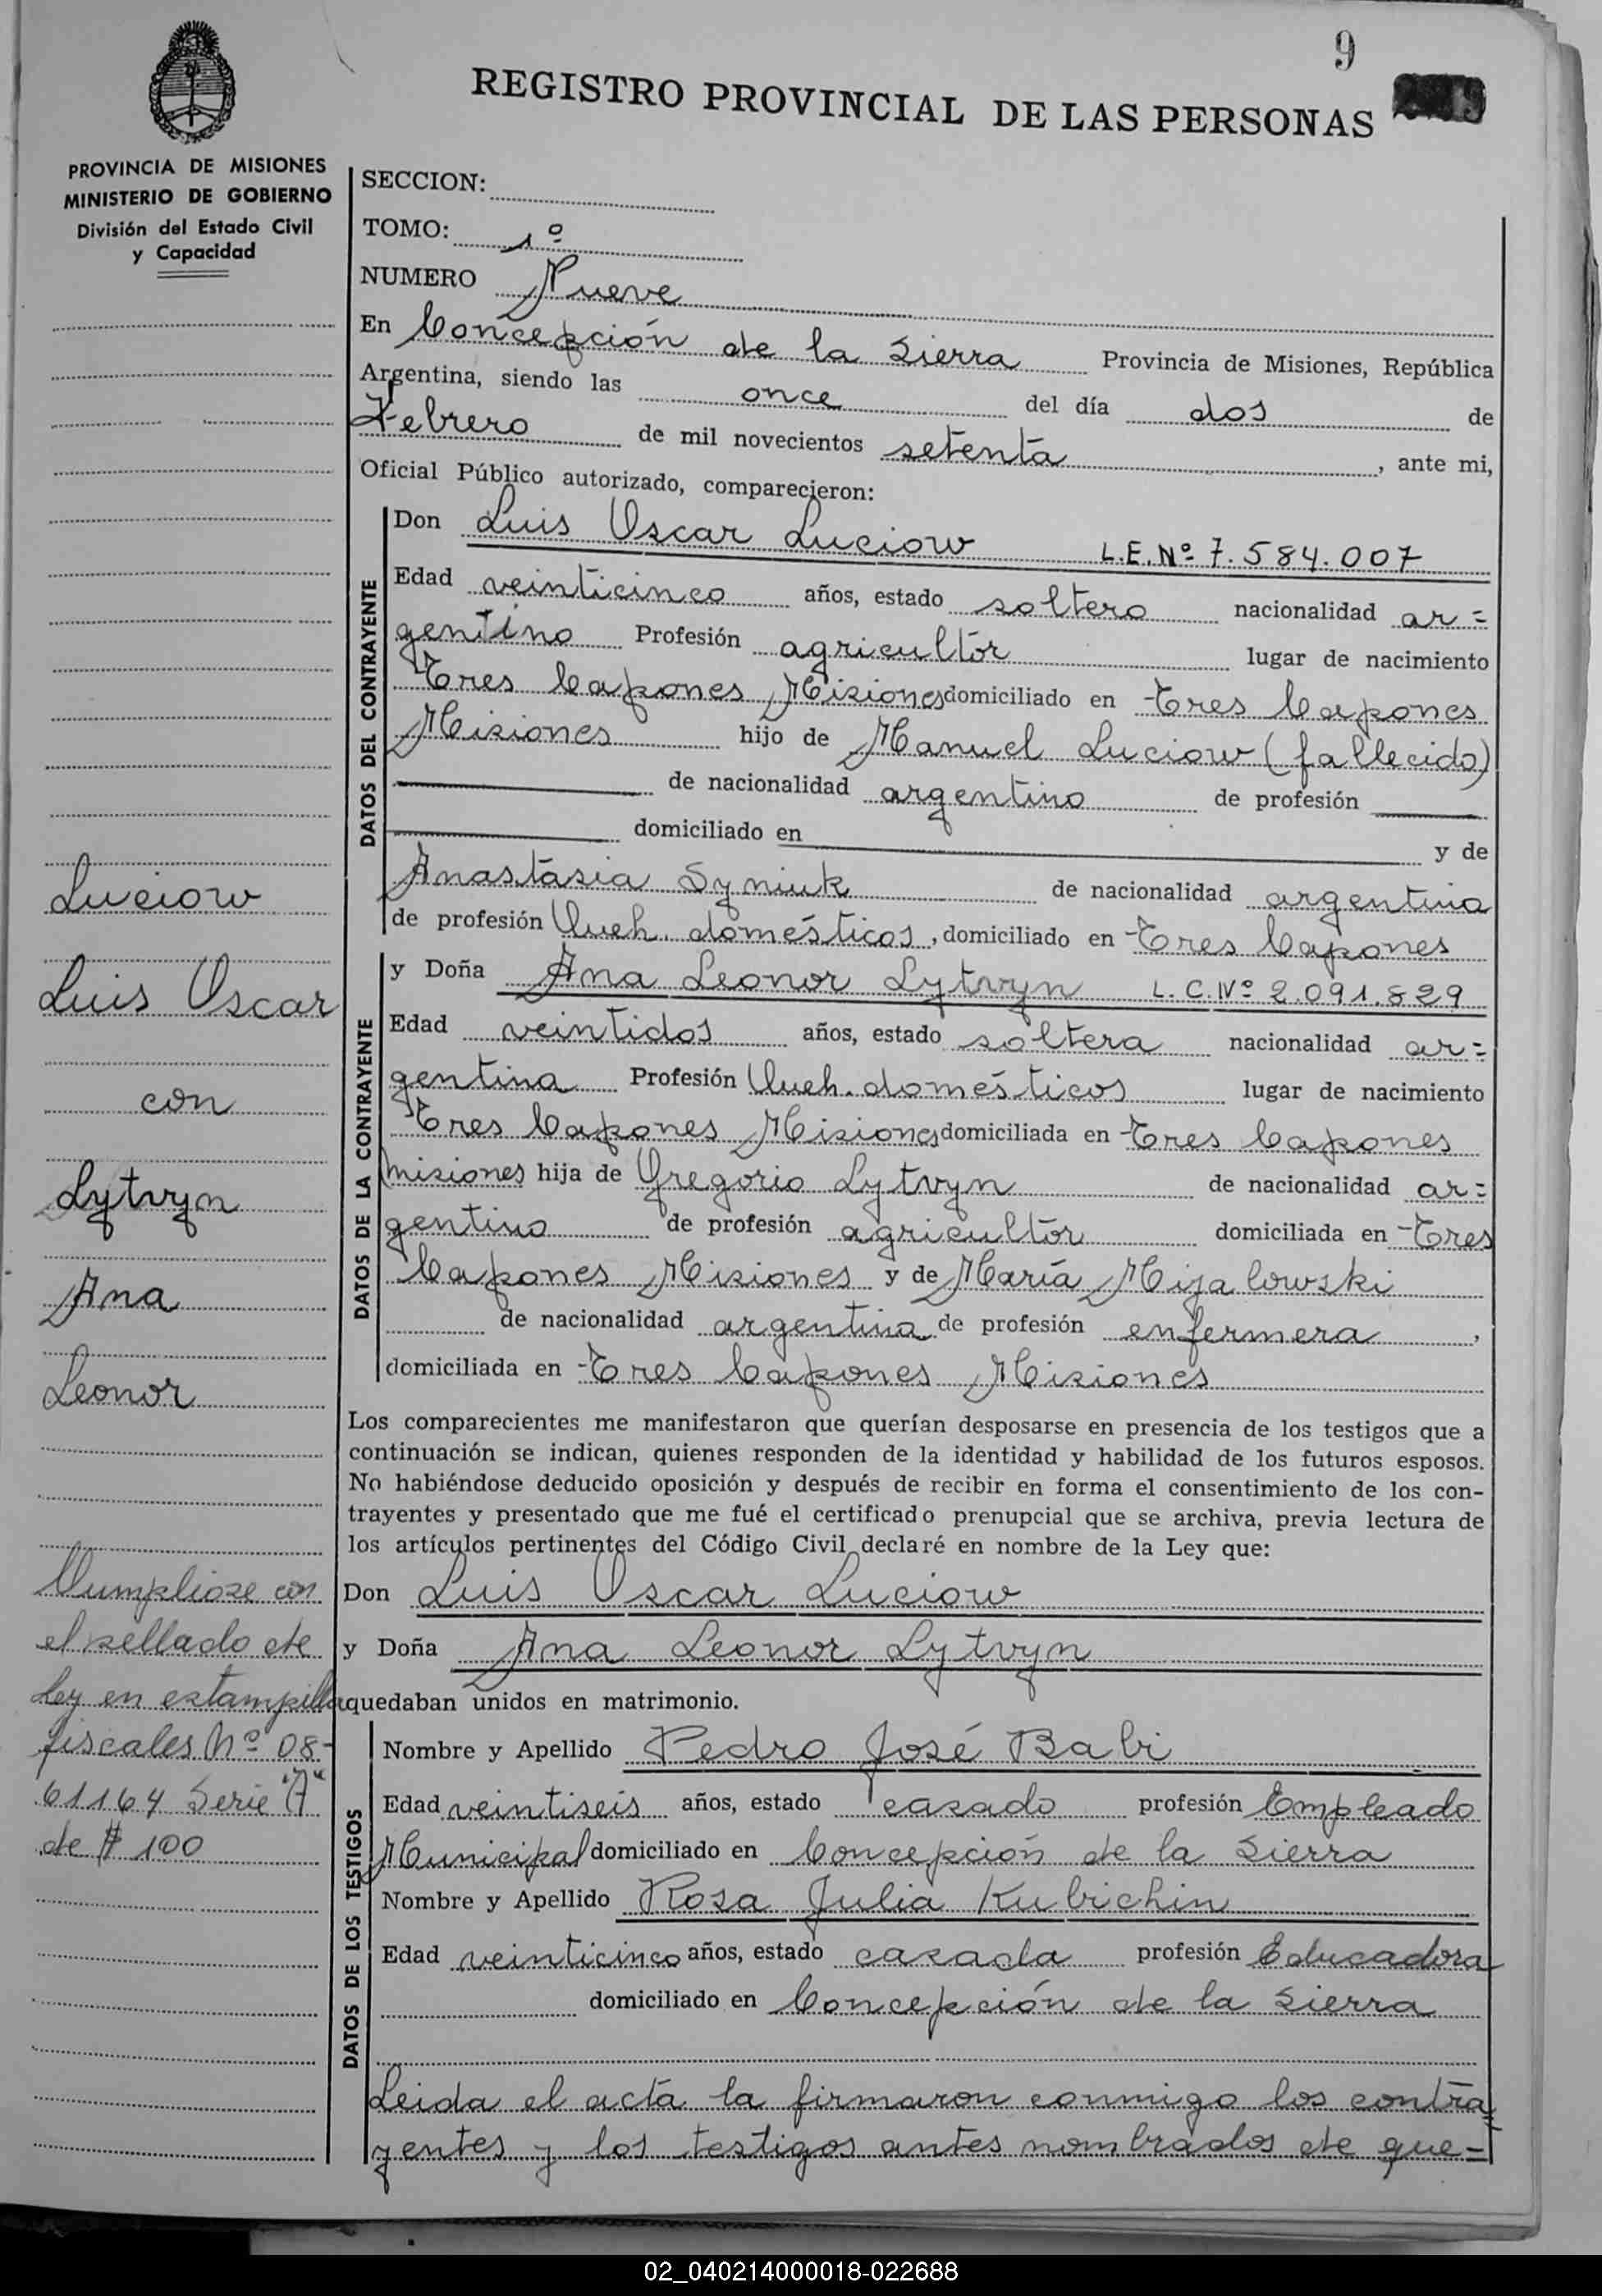 9
REGISTRO PROVINCIAL DE LAS PERSONAS
PROVINCIA DE MISIONES
MINISTERIO DE GOBIERNO
División del Estado Civil
y Capacidad
SECCION:
TOMO: 1º
NUMERO Nueve
En Concepción de la Sierra Provincia de Misiones, República
Argentina, siendo las once del día dos de
Febrero de mil novecientos setenta, ante mi,
Oficial Público autorizado, comparecieron:
DATOS DEL CONTRAYENTE
Don Luis Oscar Luciow L.E.Nº 7.584.007
Edad veinticinco años, estado soltero nacionalidad ar=
gentino Profesión agricultor lugar de nacimiento
Tres Capones Misiones domiciliado en Tres Capones
Misiones hijo de Manuel Luciow (fallecido)
de nacionalidad argentino de profesión
domiciliado en y de
Anastasia Syniuk de nacionalidad argentina
de profesión Queh. domésticos, domiciliado en Tres Capones
DATOS DE LA CONTRAYENTE
y Doña Ana Leonor Lytvyn L.C.Nº 2.091.829
Edad veintidos años, estado soltera nacionalidad ar=
gentina Profesión Queh. domésticos lugar de nacimiento
Tres Capones Misiones domiciliada en Tres Capones
Misiones hija de Gregorio Lytvyn de nacionalidad ar=
gentino de profesión agricultor domiciliada en Tres
Capones Misiones y de María Mijalowski
de nacionalidad argentina de profesión enfermera,
domiciliada en Tres Capones Misiones
Los comparecientes me manifestaron que querían desposarse en presencia de los testigos que a
continuación se indican, quienes responden de la identidad y habilidad de los futuros esposos.
No habiéndose deducido oposición y después de recibir en forma el consentimiento de los con-
trayentes y presentado que me fué el certificado prenupcial que se archiva, previa lectura de
los artículos pertinentes del Código Civil declaré en nombre de la Ley que:
Don Luis Oscar Luciow
y Doña Ana Leonor Lytvyn
quedaban unidos en matrimonio.
DATOS DE LOS TESTIGOS
Nombre y Apellido Pedro José Babi
Edad veintiseis años, estado casado profesión Empleado
Municipal domiciliado en Concepción de la Sierra
Nombre y Apellido Rosa Julia Kubichin
Edad veinticinco años, estado casada profesión Educadora
domiciliado en Concepción de la Sierra
Leida el acta la firmaron conmigo los contra=
yentes y los testigos antes nombrados de que=
Luciow
Luis Oscar
con
Lytvyn
Ana
Leonor
Cumpliose con
el sellado de
ley en estampilla
fiscales Nº 08-
61164 Serie "A"
de $ 100
02_040214000018-022688